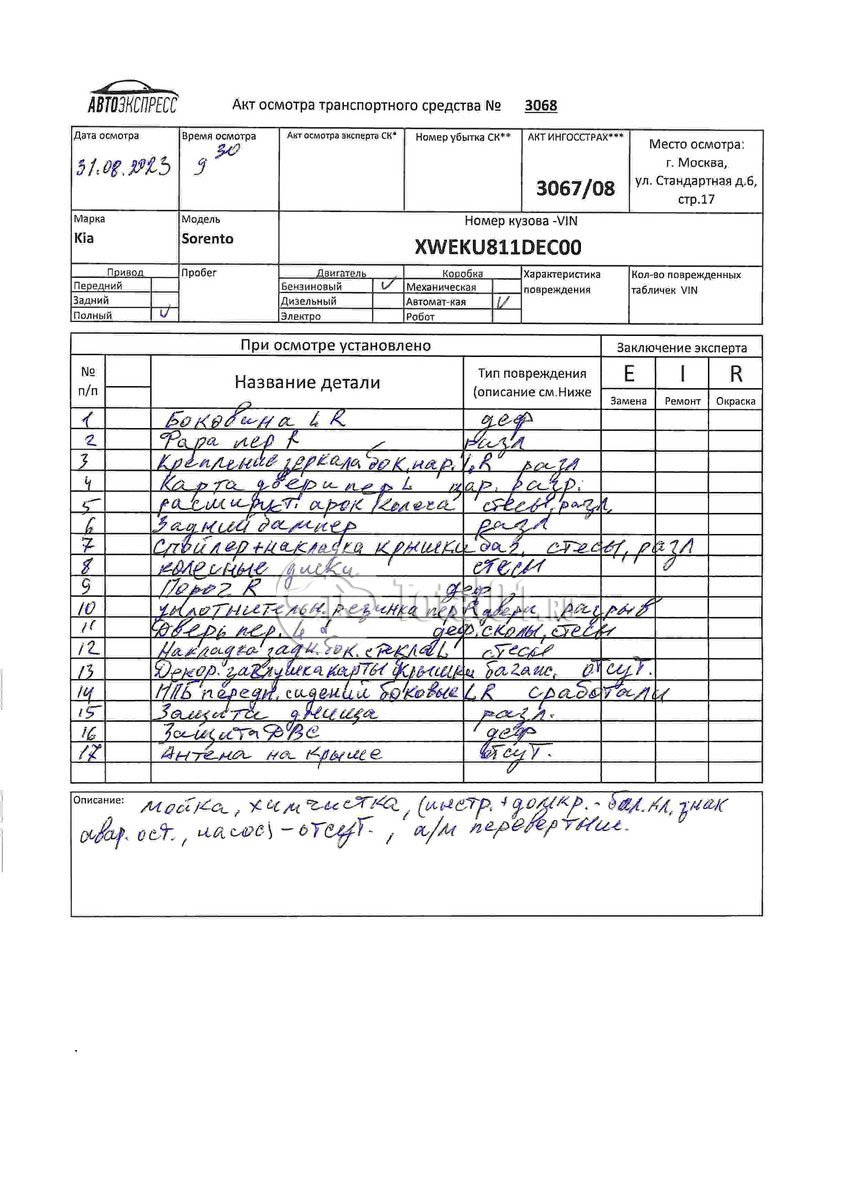 АВТОЭКСПРЕСС
Акт осмотра транспортного средства № 3068
Дата осмотра Время осмотра Акт осмотра эксперта СК* Номер убытка СК** АКТ ИНГОССТРАХ*** Место осмотра:
31.08.2023 9 30 3067/08 г. Москва,
ул. Стандартная д.6,
стр.17
Марка Модель Номер кузова -VIN
Kia Sorento XWEKU811DEC00
Привод Пробег Двигатель Коробка Характеристика повреждения Кол-во поврежденных табличек VIN
Передний Бензиновый V Механическая
Задний Дизельный Автомат-кая V
Полный V Электро Робот
При осмотре установлено Заключение эксперта
№ п/п Название детали Тип повреждения (описание см.Ниже E I R
Замена Ремонт Окраска
1 Боковина L R деф
2 Фара пер R разл
3 Крепление зеркала бок. нар. L, R разл
4 Карта двери пер L цар. разр.
5 расширит. арок колеса стесы, разл,
6 Задний бампер разл
7 Спойлер+накладка крышки баг. стесы, разл
8 колесные диски стесы
9 Порог R деф
10 уплотнительн. резинка пер R двери разрыв
11 Дверь пер. L деф, сколы, стесы
12 Накладка задн. бок. стекла L стесы
13 Декор. заглушка карты крышки багаж. отсут.
14 НПБ передн. сидений боковые L R сработали
15 Защита днища разл.
16 Защита ДВС деф
17 Антена на крыше отсут.
TOTAL01.RU
Описание: мойка, химчистка, (инстр.+домкр.- бал.кл, знак
авар. ост., насос) - отсут., а/м перевертыш.